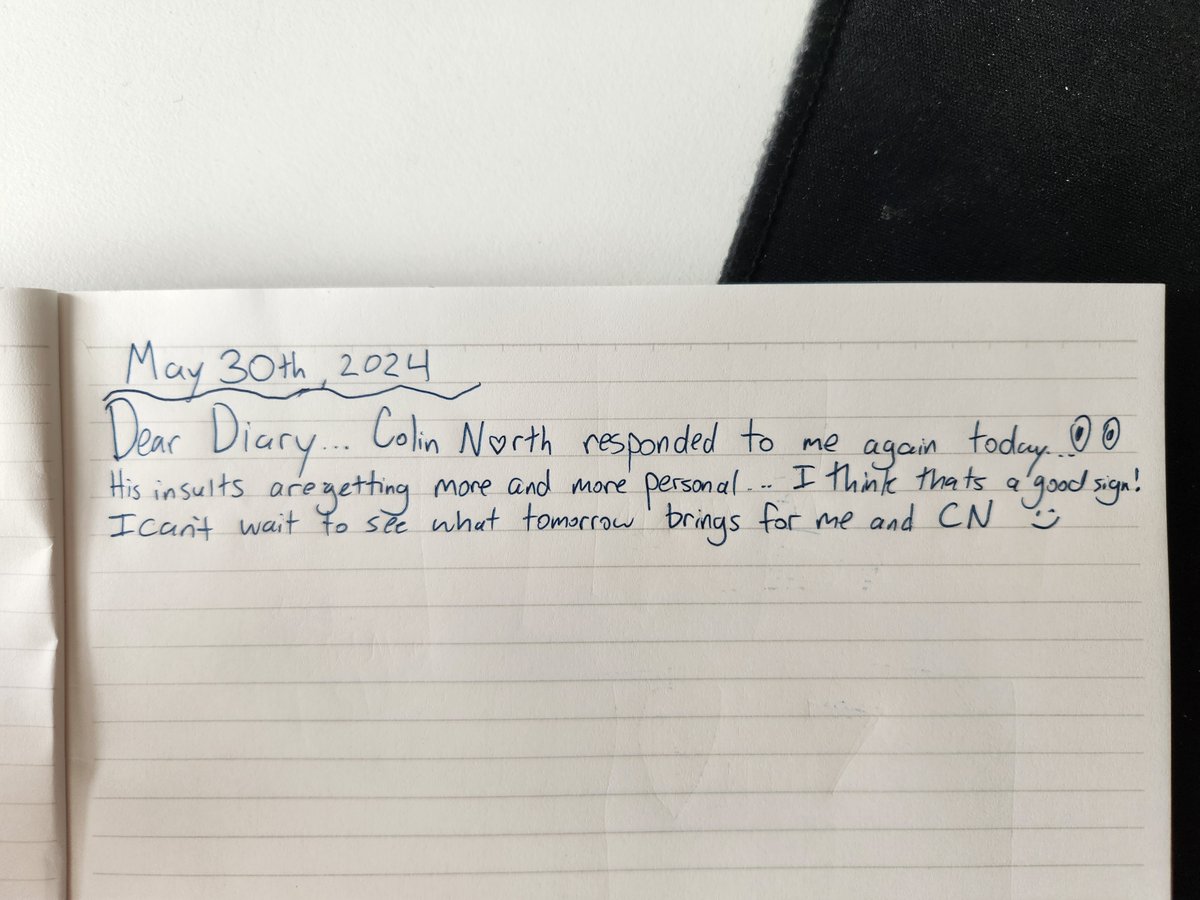 May 30th, 2024
Dear Diary... Colin N♡rth responded to me again today...
His insults are getting more and more personal.... I think thats a good sign!
I can't wait to see what tomorrow brings for me and CN :)